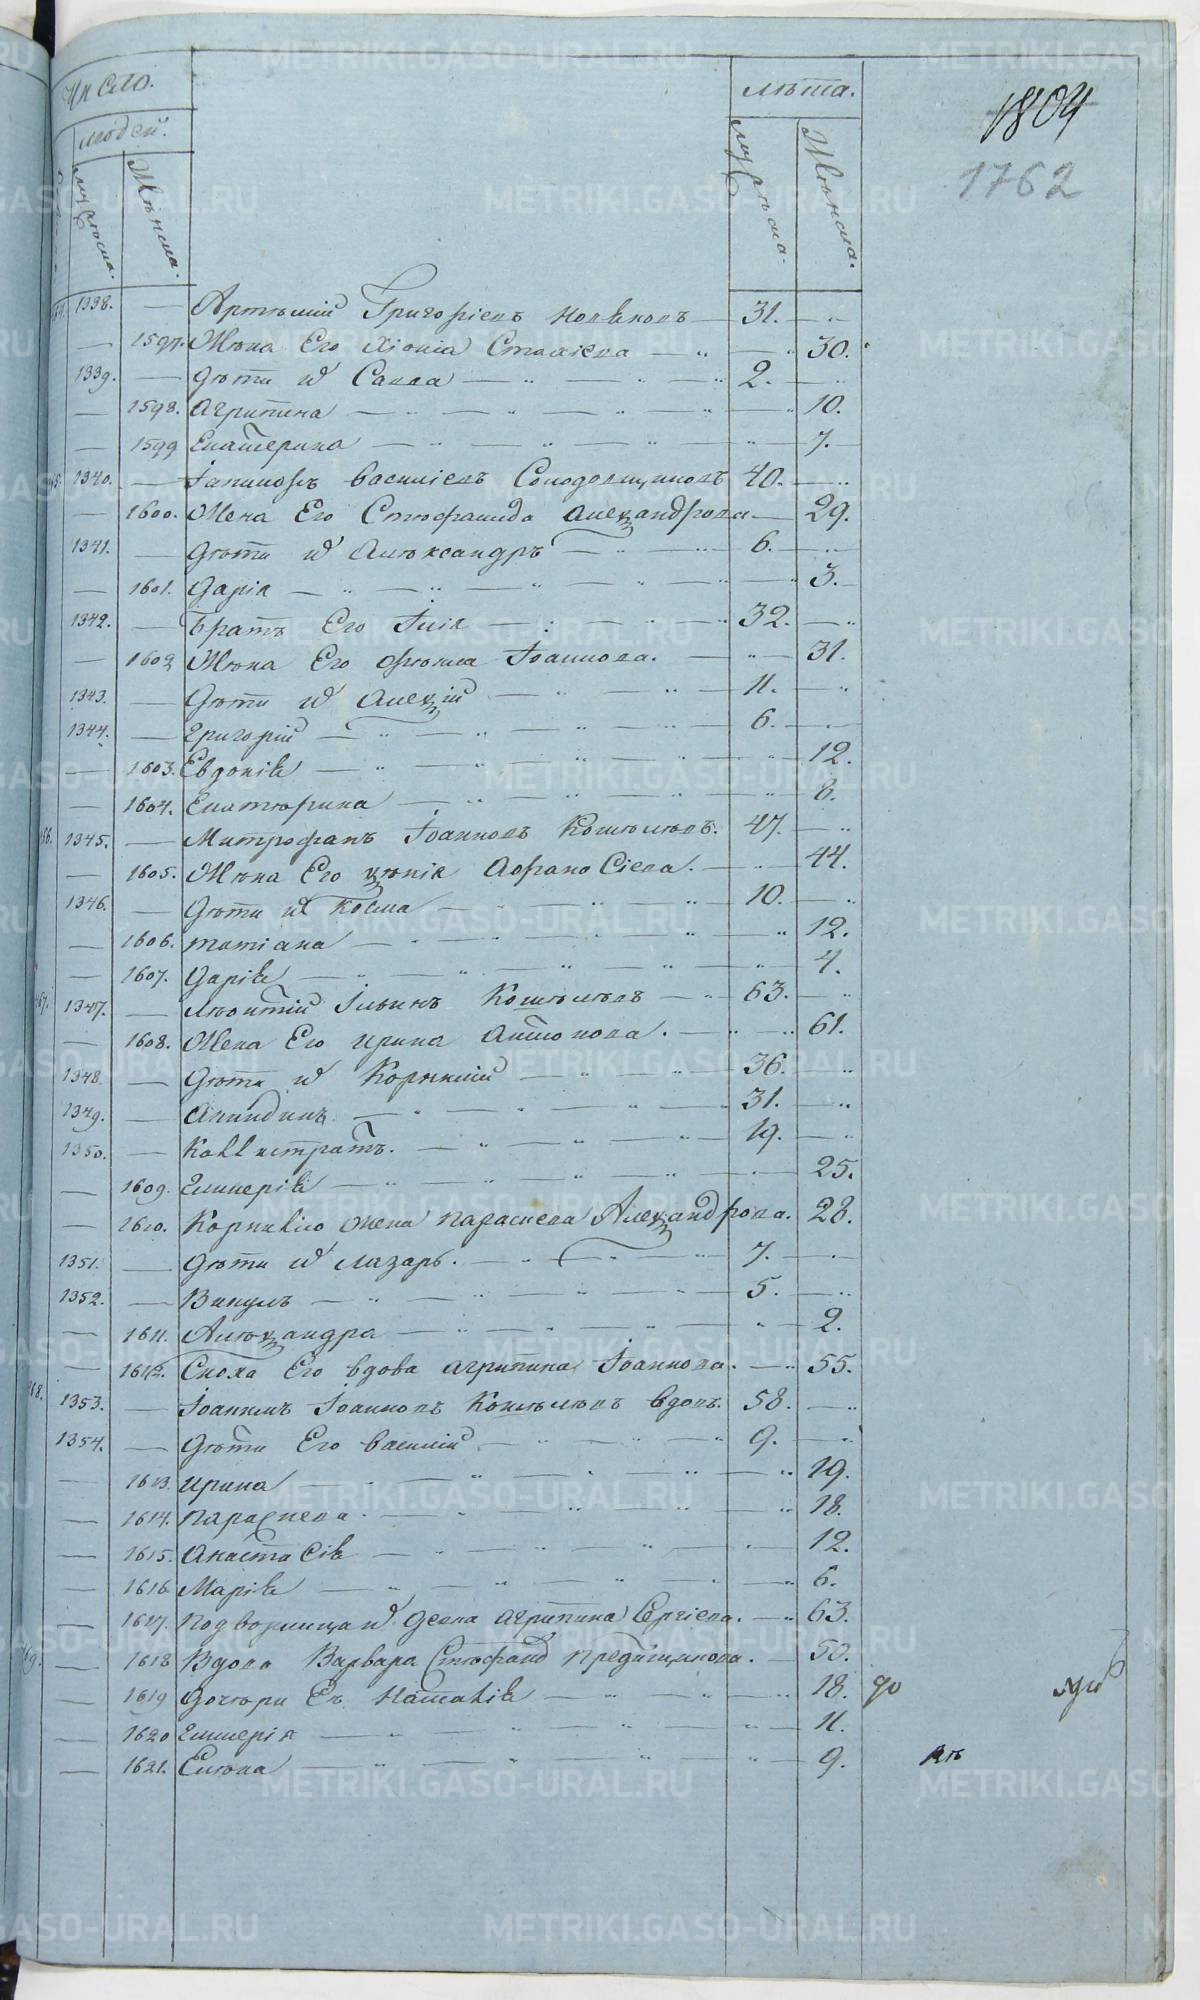 Число. лѣта. 1804
людей. 1762
мужеска. женска. мужеска. женска.
1338. Артемій Григорьевъ Новиковъ 31.
1597. Жена Его Хіонія 30.
1339. дѣти их Савва 2.
1598. Агрипина 10.
1599 Екатерина 7.
1340. Василіевъ Солодовщиковъ 40.
1600. Жена Его Стефанида Александрова 29.
1341. дѣти их Александръ 6.
1601. Дарія 3.
1342. Братъ Его Илія 32.
1602 Жена Его Фекла Іоаннова. 31.
1343. дѣти их Алексій 11.
1344. Григорій 6.
1603. Евдокія 12.
1604. Екатерина 8.
1345. Митрофанъ Іоанновъ Кошелевъ. 47.
1605. Жена Его Ксенія 44.
1346. дѣти их Косма 10.
1606. татіана 12.
1607. Дарія 4.
1347. Леонтій Ильинъ Кошелевъ 63.
1608. Жена Его Ирина Антонова. 61.
1348. дѣти их Корнилій 36.
1349. Акиндинъ 31.
1350. Каллистратъ. 19.
1609. Гликерія 25.
1610. Корнилію жена параскева Александрова. 28.
1351. дѣти их лазарь. 7.
1352. Викулъ 5.
1611. Александра 2.
1612. Сноха Его вдова агрипина Іоаннова. 55.
1353. Іоакимъ Іоанновъ Кошелевъ вдовъ. 58.
1354. дѣти Его василій 9.
1613. ирина 19.
1614. параскева 18.
1615. Анастасія 12.
1616 Марія 6.
1617. Подворница их девка агрипина Сергіева. 63.
1618 Вдова Варвара 50.
1619 дочери Ея Наталія 18.
1620 Гликерія 11.
1621. Елена 9.